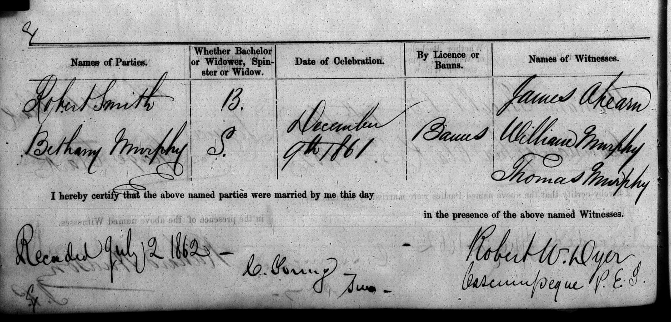 Names of Parties.
Whether Bachelor or Widower, Spinster or Widow.
Date of Celebration.
By Licence or Banns.
Names of Witnesses.
Robert Smith
B.
James Ahearn
Bethany Murphy
S.
December
9th 1861
Banns
William Murphy
Thomas Murphy
I hereby certify that the above named parties were married by me this day
in the presence of the above named Witnesses.
Recorded July 2 1862 -
Robert W. Dyer
Cascumpeque P.E.I.